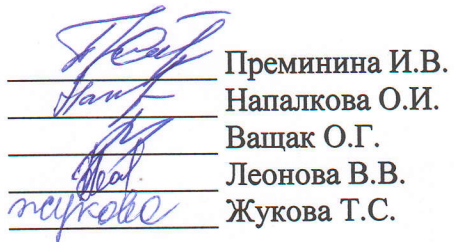 Преминина И.В.
Напалкова О.И.
Ващак О.Г.
Леонова В.В.
жукова Жукова Т.С.